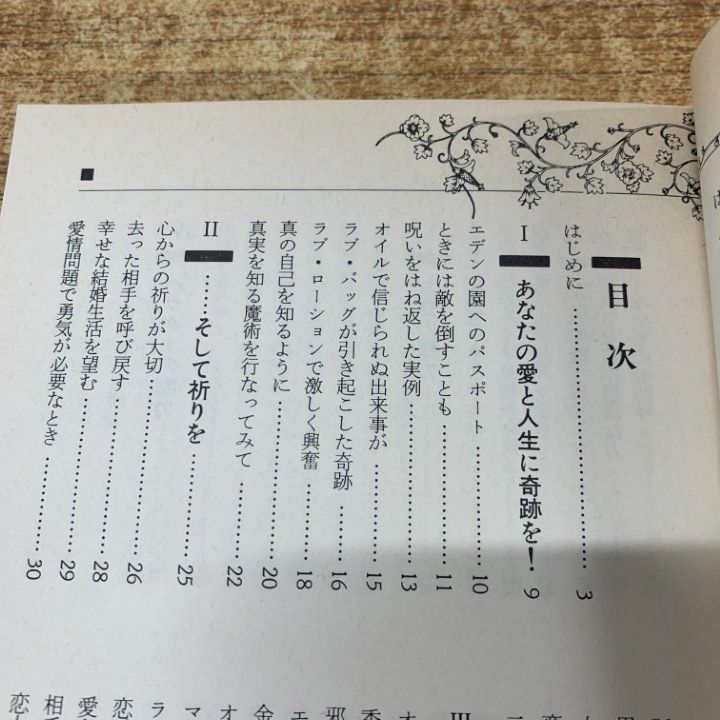 目次
はじめに……3
I あなたの愛と人生に奇跡を！ 9
エデンの園へのパスポート……10
ときには敵を倒すことも……11
呪いをはね返した実例……13
オイルで信じられぬ出来事が……15
ラブ・バッグが引き起こした奇跡……16
ラブ・ローションで激しく興奮……18
真の自己を知るように……20
真実を知る魔術を行なってみて……22
II ……そして祈りを……25
心からの祈りが大切……26
去った相手を呼び戻す……28
幸せな結婚生活を望む……29
愛情問題で勇気が必要なとき……30